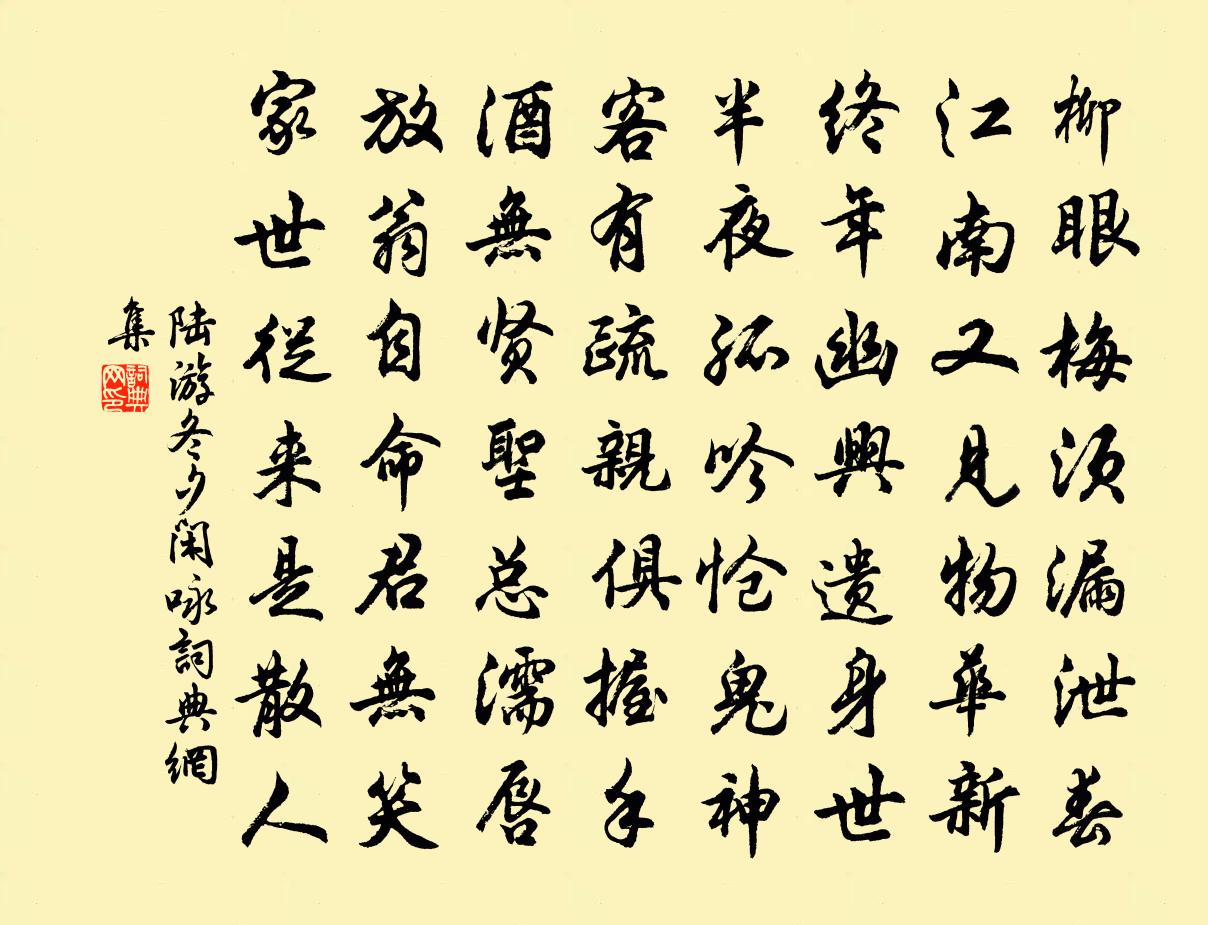 柳眼梅須漏泄春
江南又見物華新
終年幽興遺身世
半夜孤吟愴鬼神
客有疏親俱握手
酒無贤聖总濡唇
放翁自命君無笑
家世從来是散人
陆游冬夕閑咏詞典網
集
詞典网印